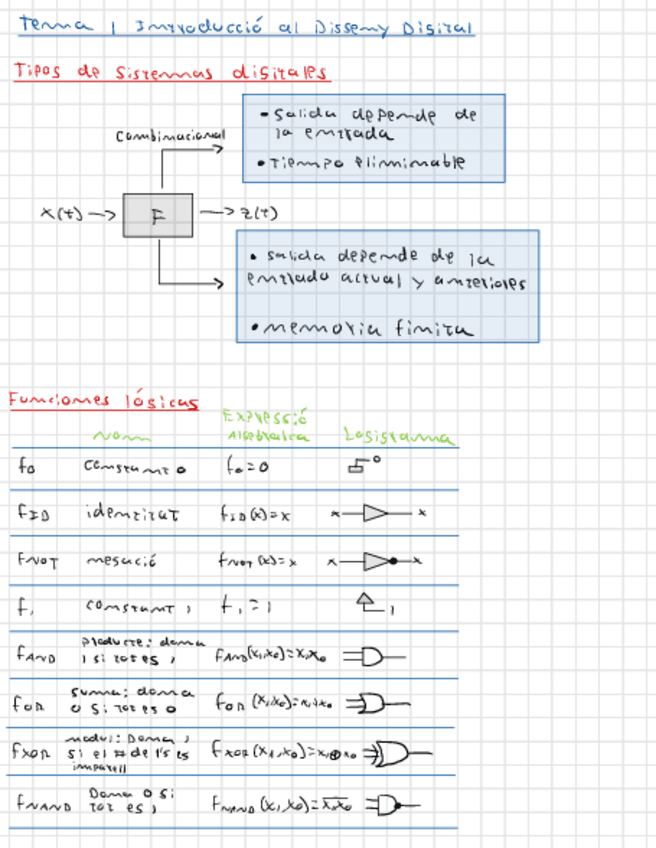 Tema 1 Introducció al Disseny Digital
Tipos de sistemas digitales
Combinacional
• Salida depende de
la entrada
• Tiempo eliminable
x(t) → F → z(t)
• salida depende de la
entrada actual y anteriores
• memoria finita
Funciones lógicas
Nom Expressió Algebraica Logigrama
f0 constant 0 f0 = 0 0
fID identitat fID(x) = x x x
fNOT negació fNOT(x) = x x x
f1 constant 1 f1 = 1 1
fAND producte: dona
1 si tot es 1 fAND(x1,x0) = x1x0
fOR suma: dona
0 si tot es 0 fOR(x1,x0) = x1+x0
fXOR modul: Dona 1
si el # de 1's es
imparell fXOR(x1,x0) = x1⊕x0
fNAND Dona 0 si
tot es 1 fNAND(x1,x0) = x̅1x̅0